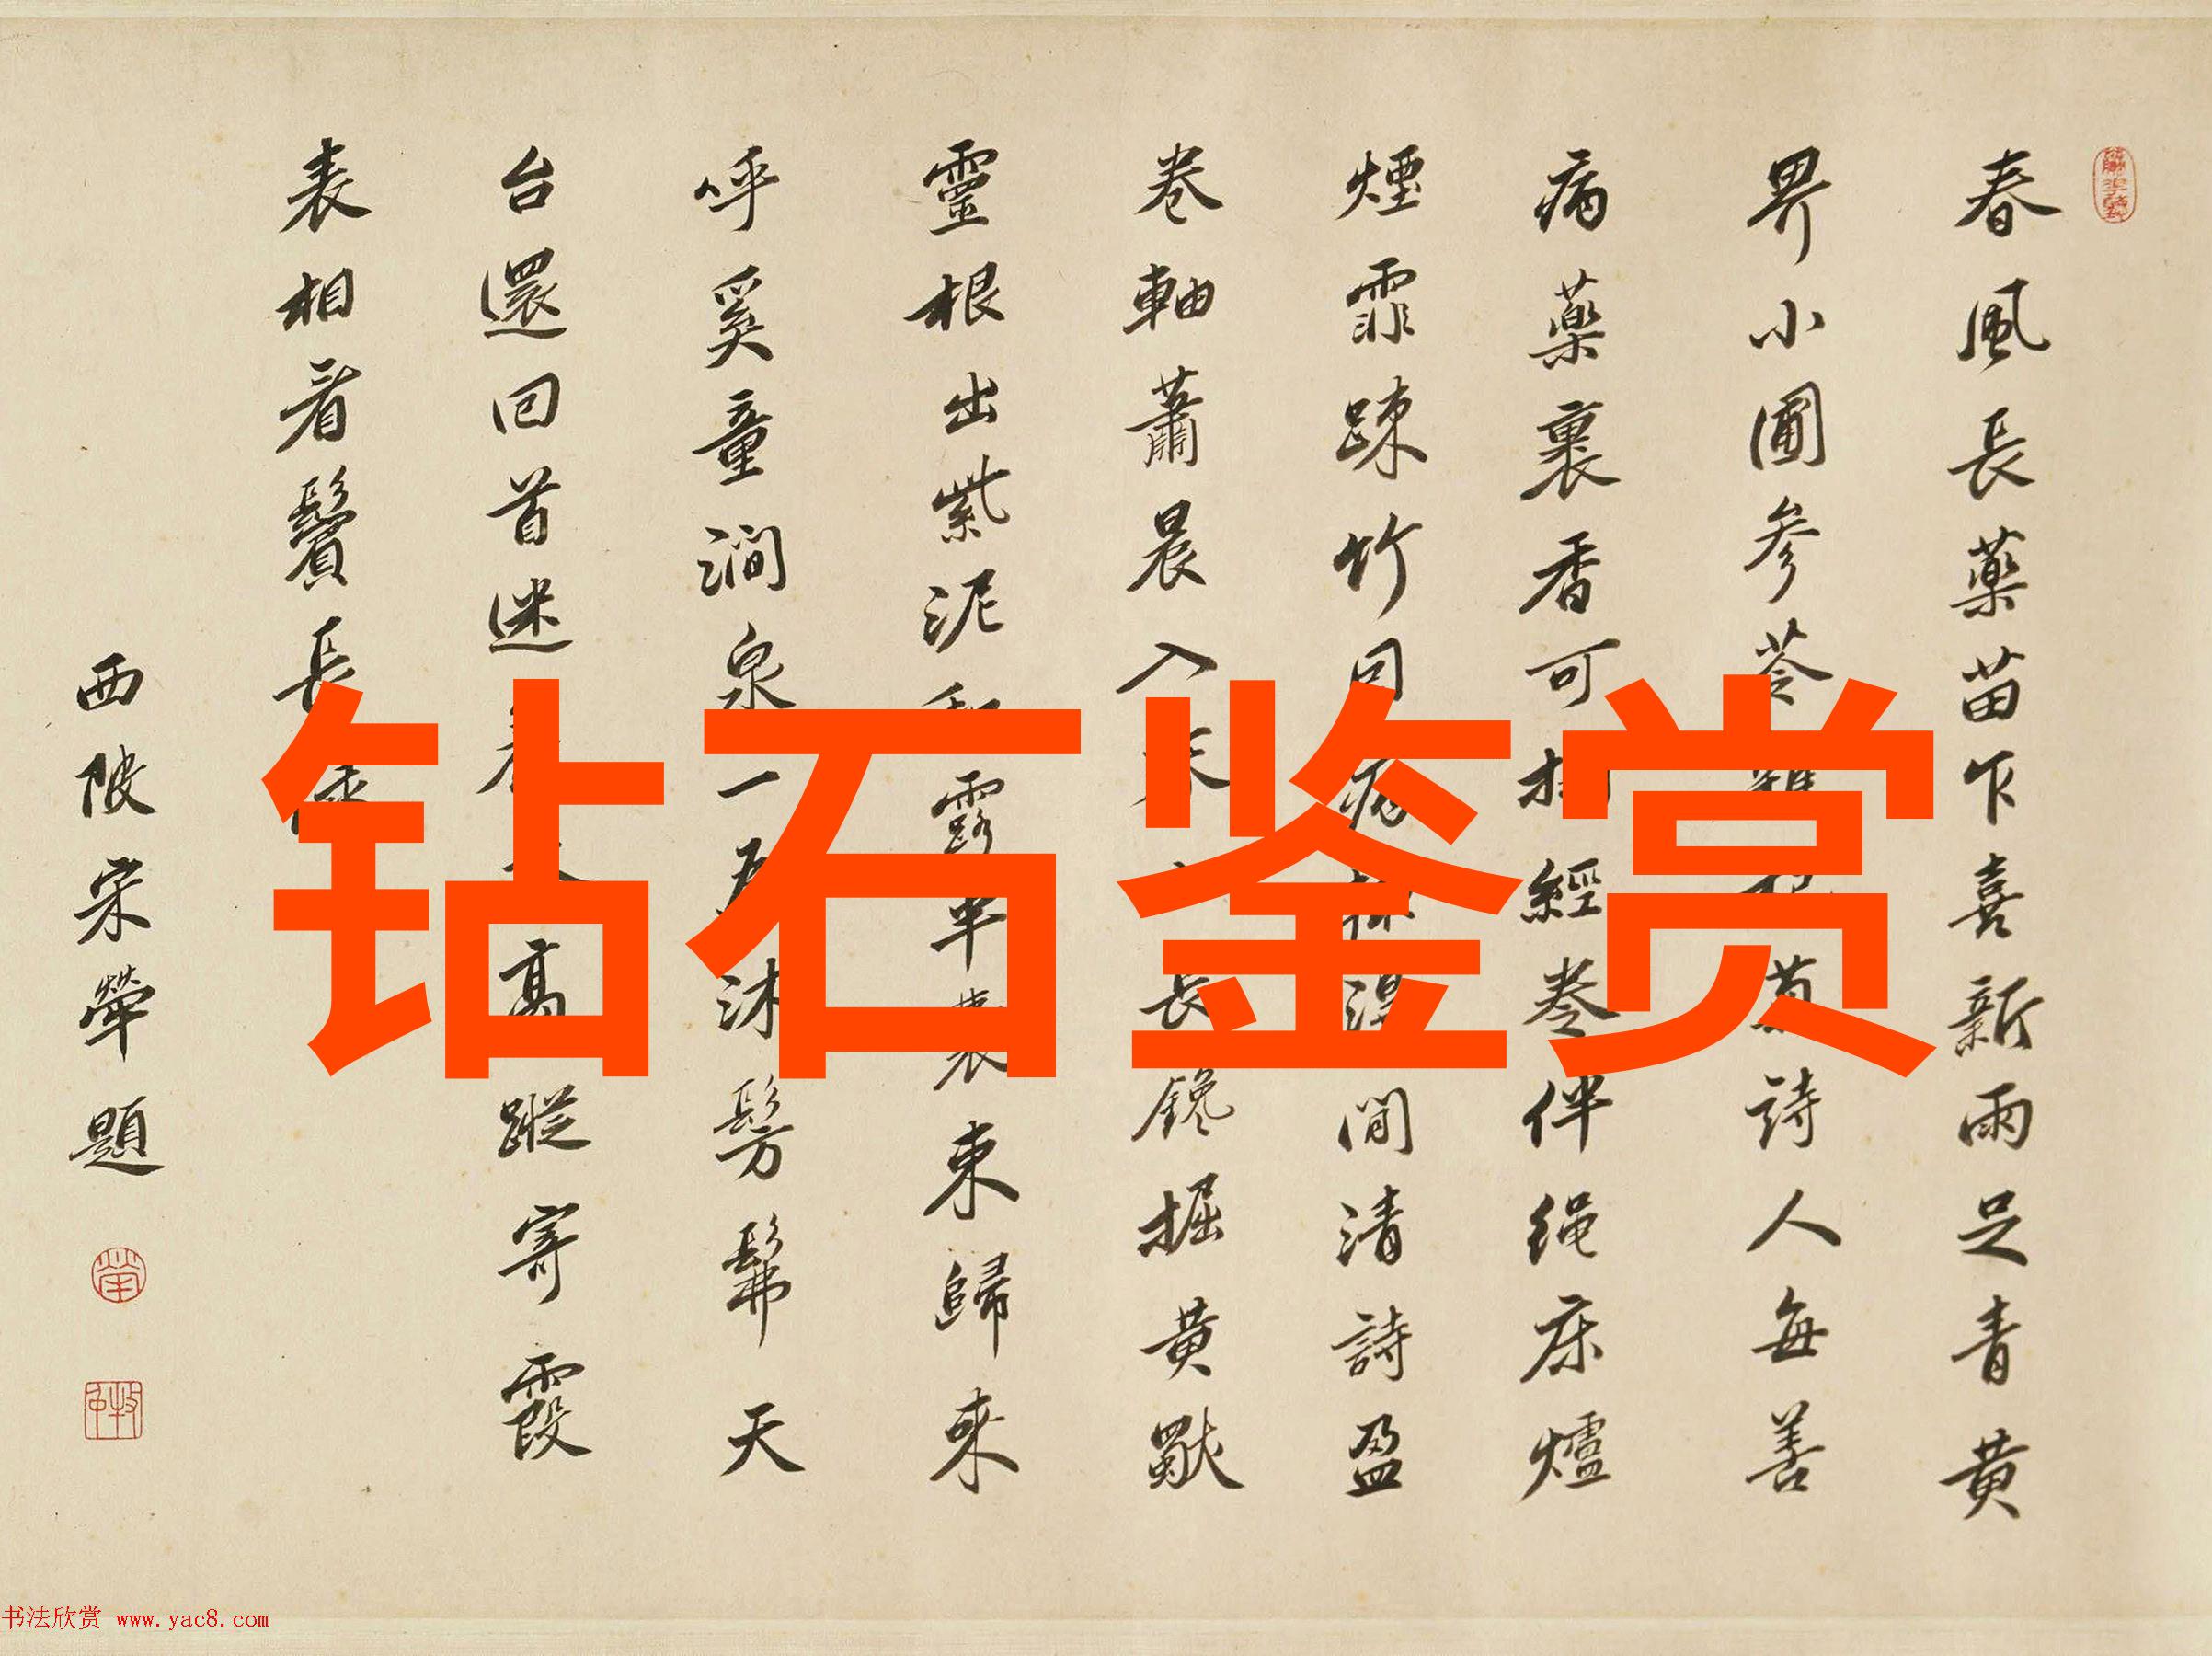 春風長藥苗乍喜新雨足青黄
界小圃參苓詩人每善
病藥裹香可經卷伴绳床爐
煙霏疎竹同間清詩盈
卷軸蕭晨入長鑱掘黄獨
靈根出紫泥露半裹束歸来
呼奚童澗泉一沐髣髴天
台還回首迷高蹤寄霞
表相看鬢長
西陂宋犖題
钻石鉴赏
书法欣赏 www.yac8.com